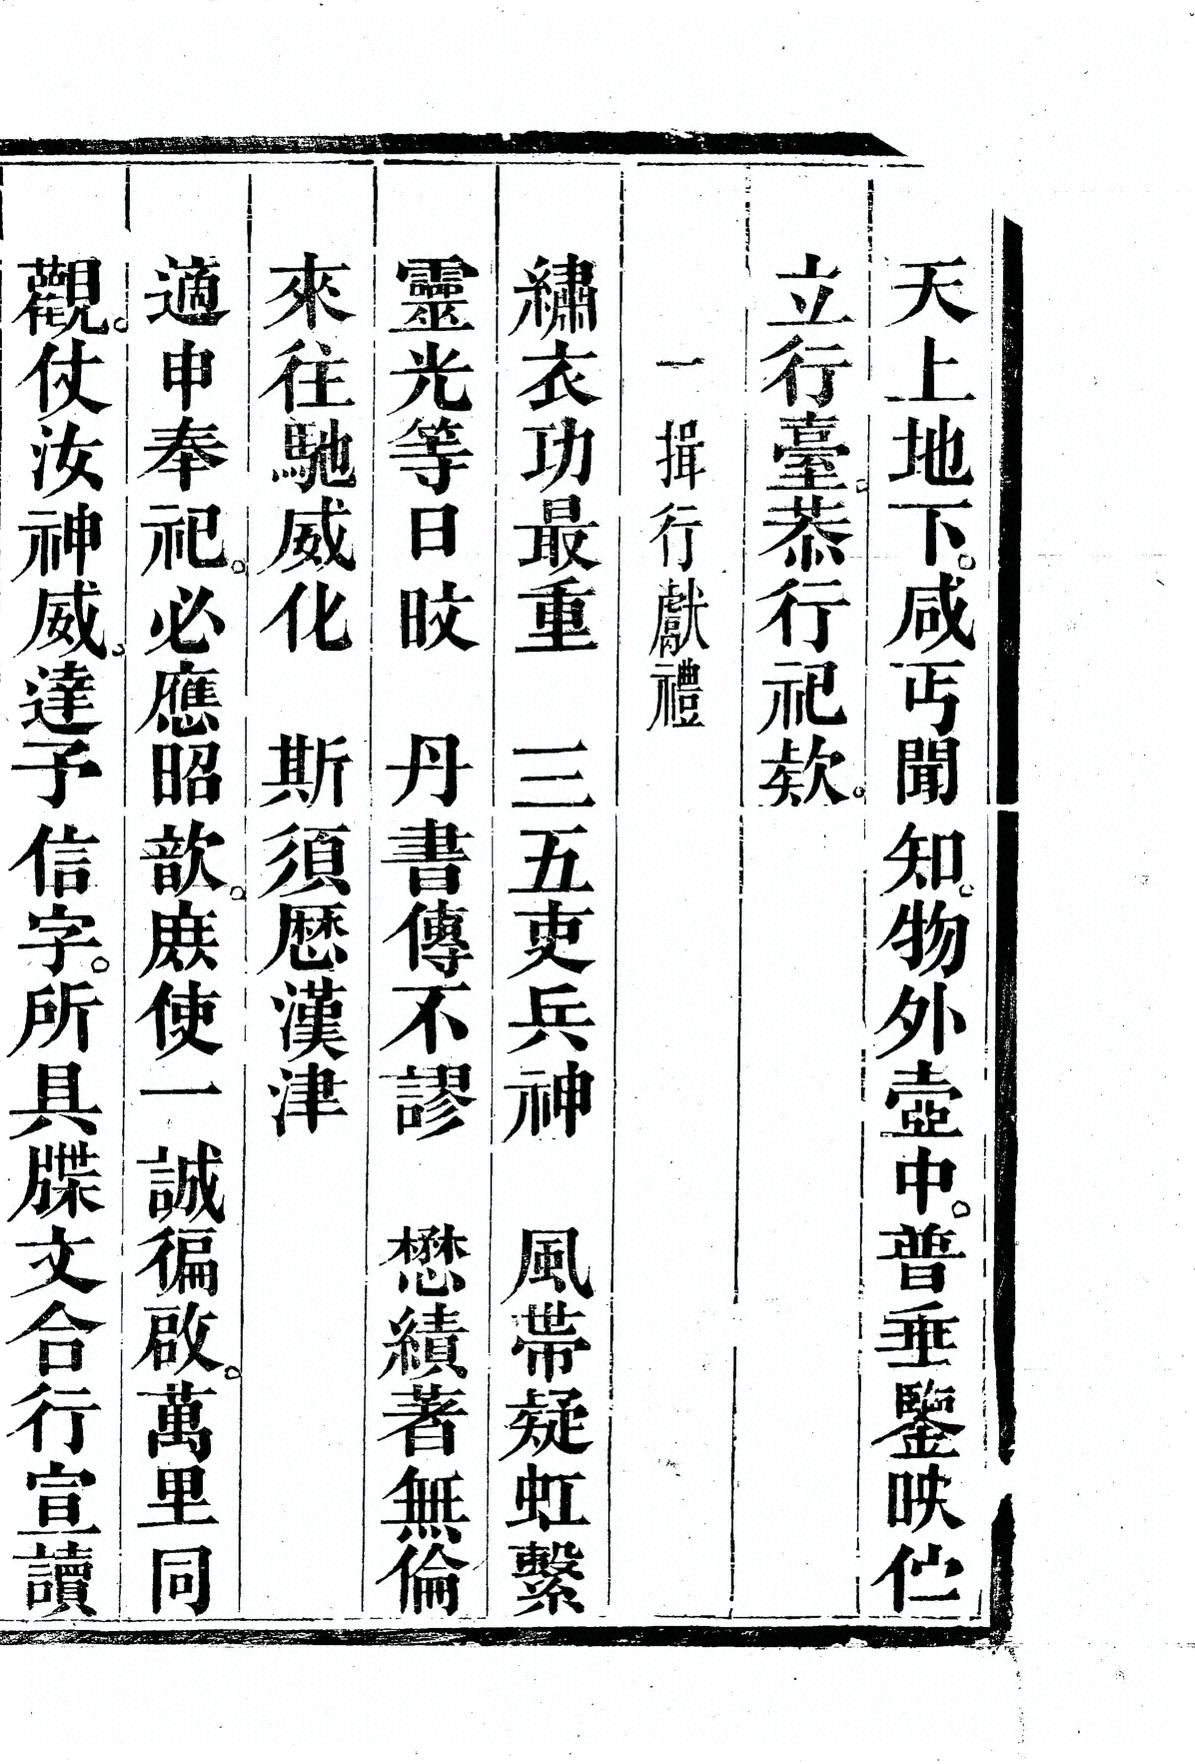 天上地下。咸丐聞知。物外壺中。普垂鑒映伫
立行臺。恭行祀欵。
一揖行獻禮
繡衣功最重　三五吏兵神　風帶疑虹繫
靈光等日旼　丹書傳不謬　懋績著無倫
來往馳威化　斯須歷漢津
適申奉祀。必應昭歆。庶使一誠徧啟。萬里同
觀。仗汝神威。達予信字。所具牒文合行宣讀